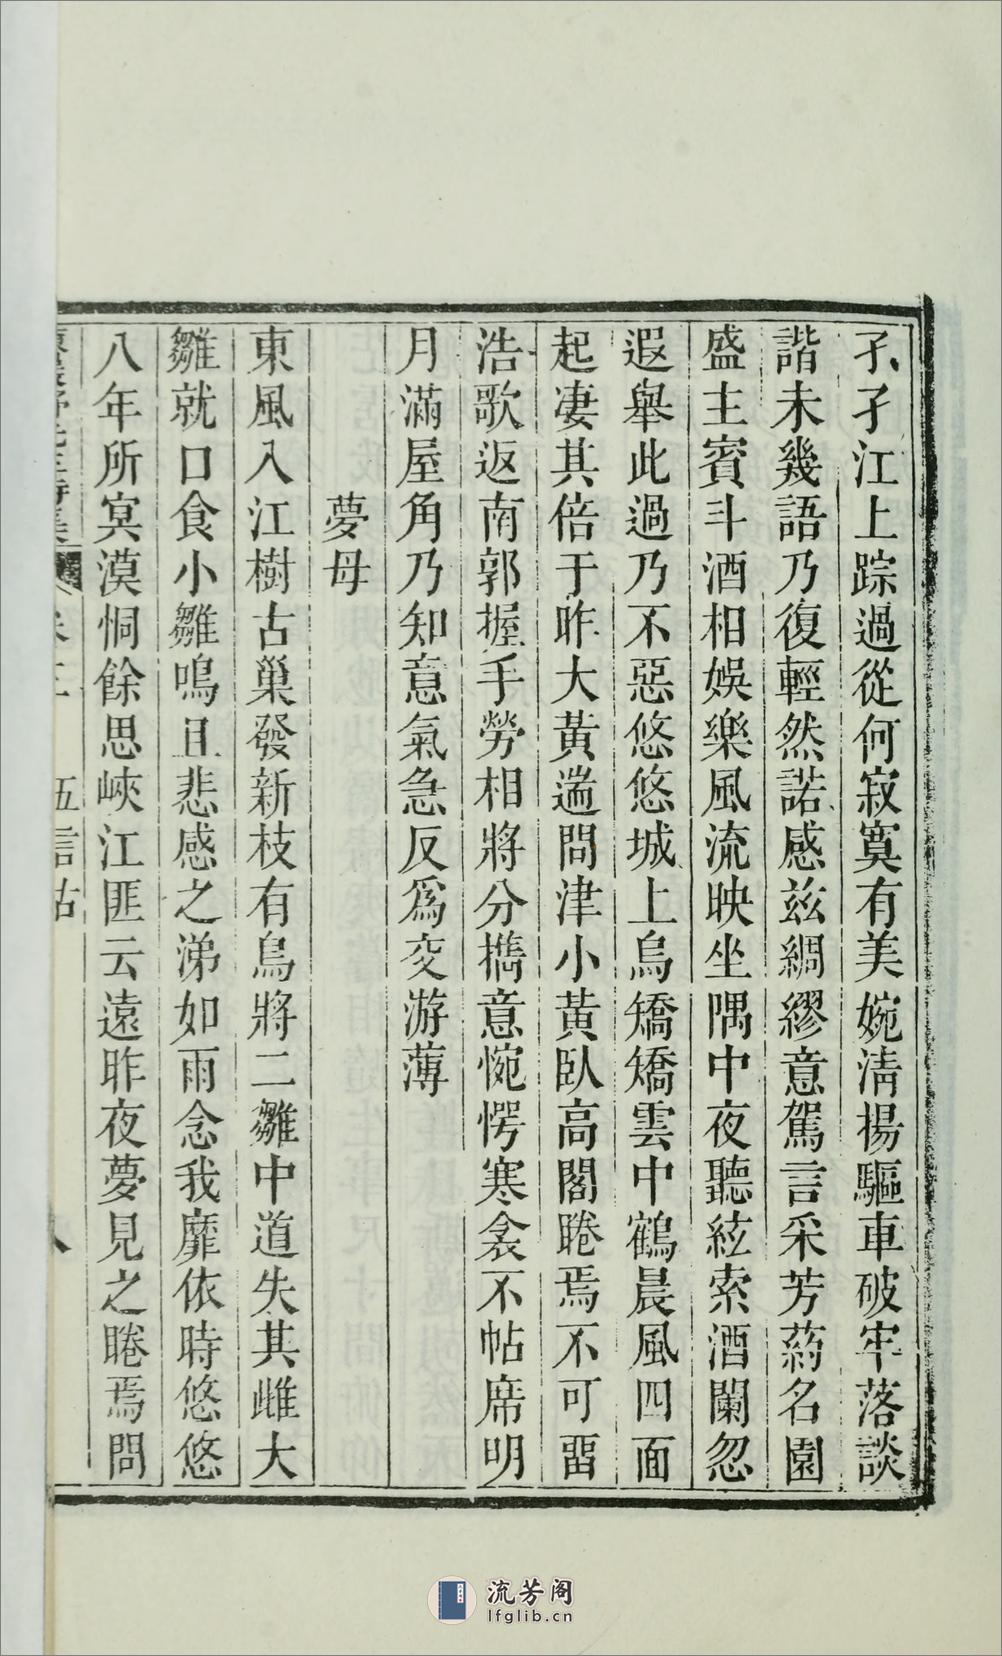 孑孑江上踪過從何寂寞有美婉淸揚驅車破牢落談
諧未幾語乃復輕然諾感兹綢繆意駕言采芳葯名園
盛主賓斗酒相娛樂風流映坐隅中夜聽絃索酒闌忽
遐舉此過乃不惡悠悠城上烏矯矯雲中鶴晨風四面
起凄其倍于昨大黃遄問津小黃臥高閣睠焉不可畱
浩歌返南郭握手勞相將分攜意惋愕寒衾不帖席明
月滿屋角乃知意氣急反爲交游薄
夢母
東風入江樹古巢發新枝有鳥將二雛中道失其雌大
雛就口食小雛鳴且悲感之涕如雨念我靡依時悠悠
八年所冥漠恫餘思峽江匪云遠昨夜夢見之睠焉問
五言古
流芳阁
lfglib.cn